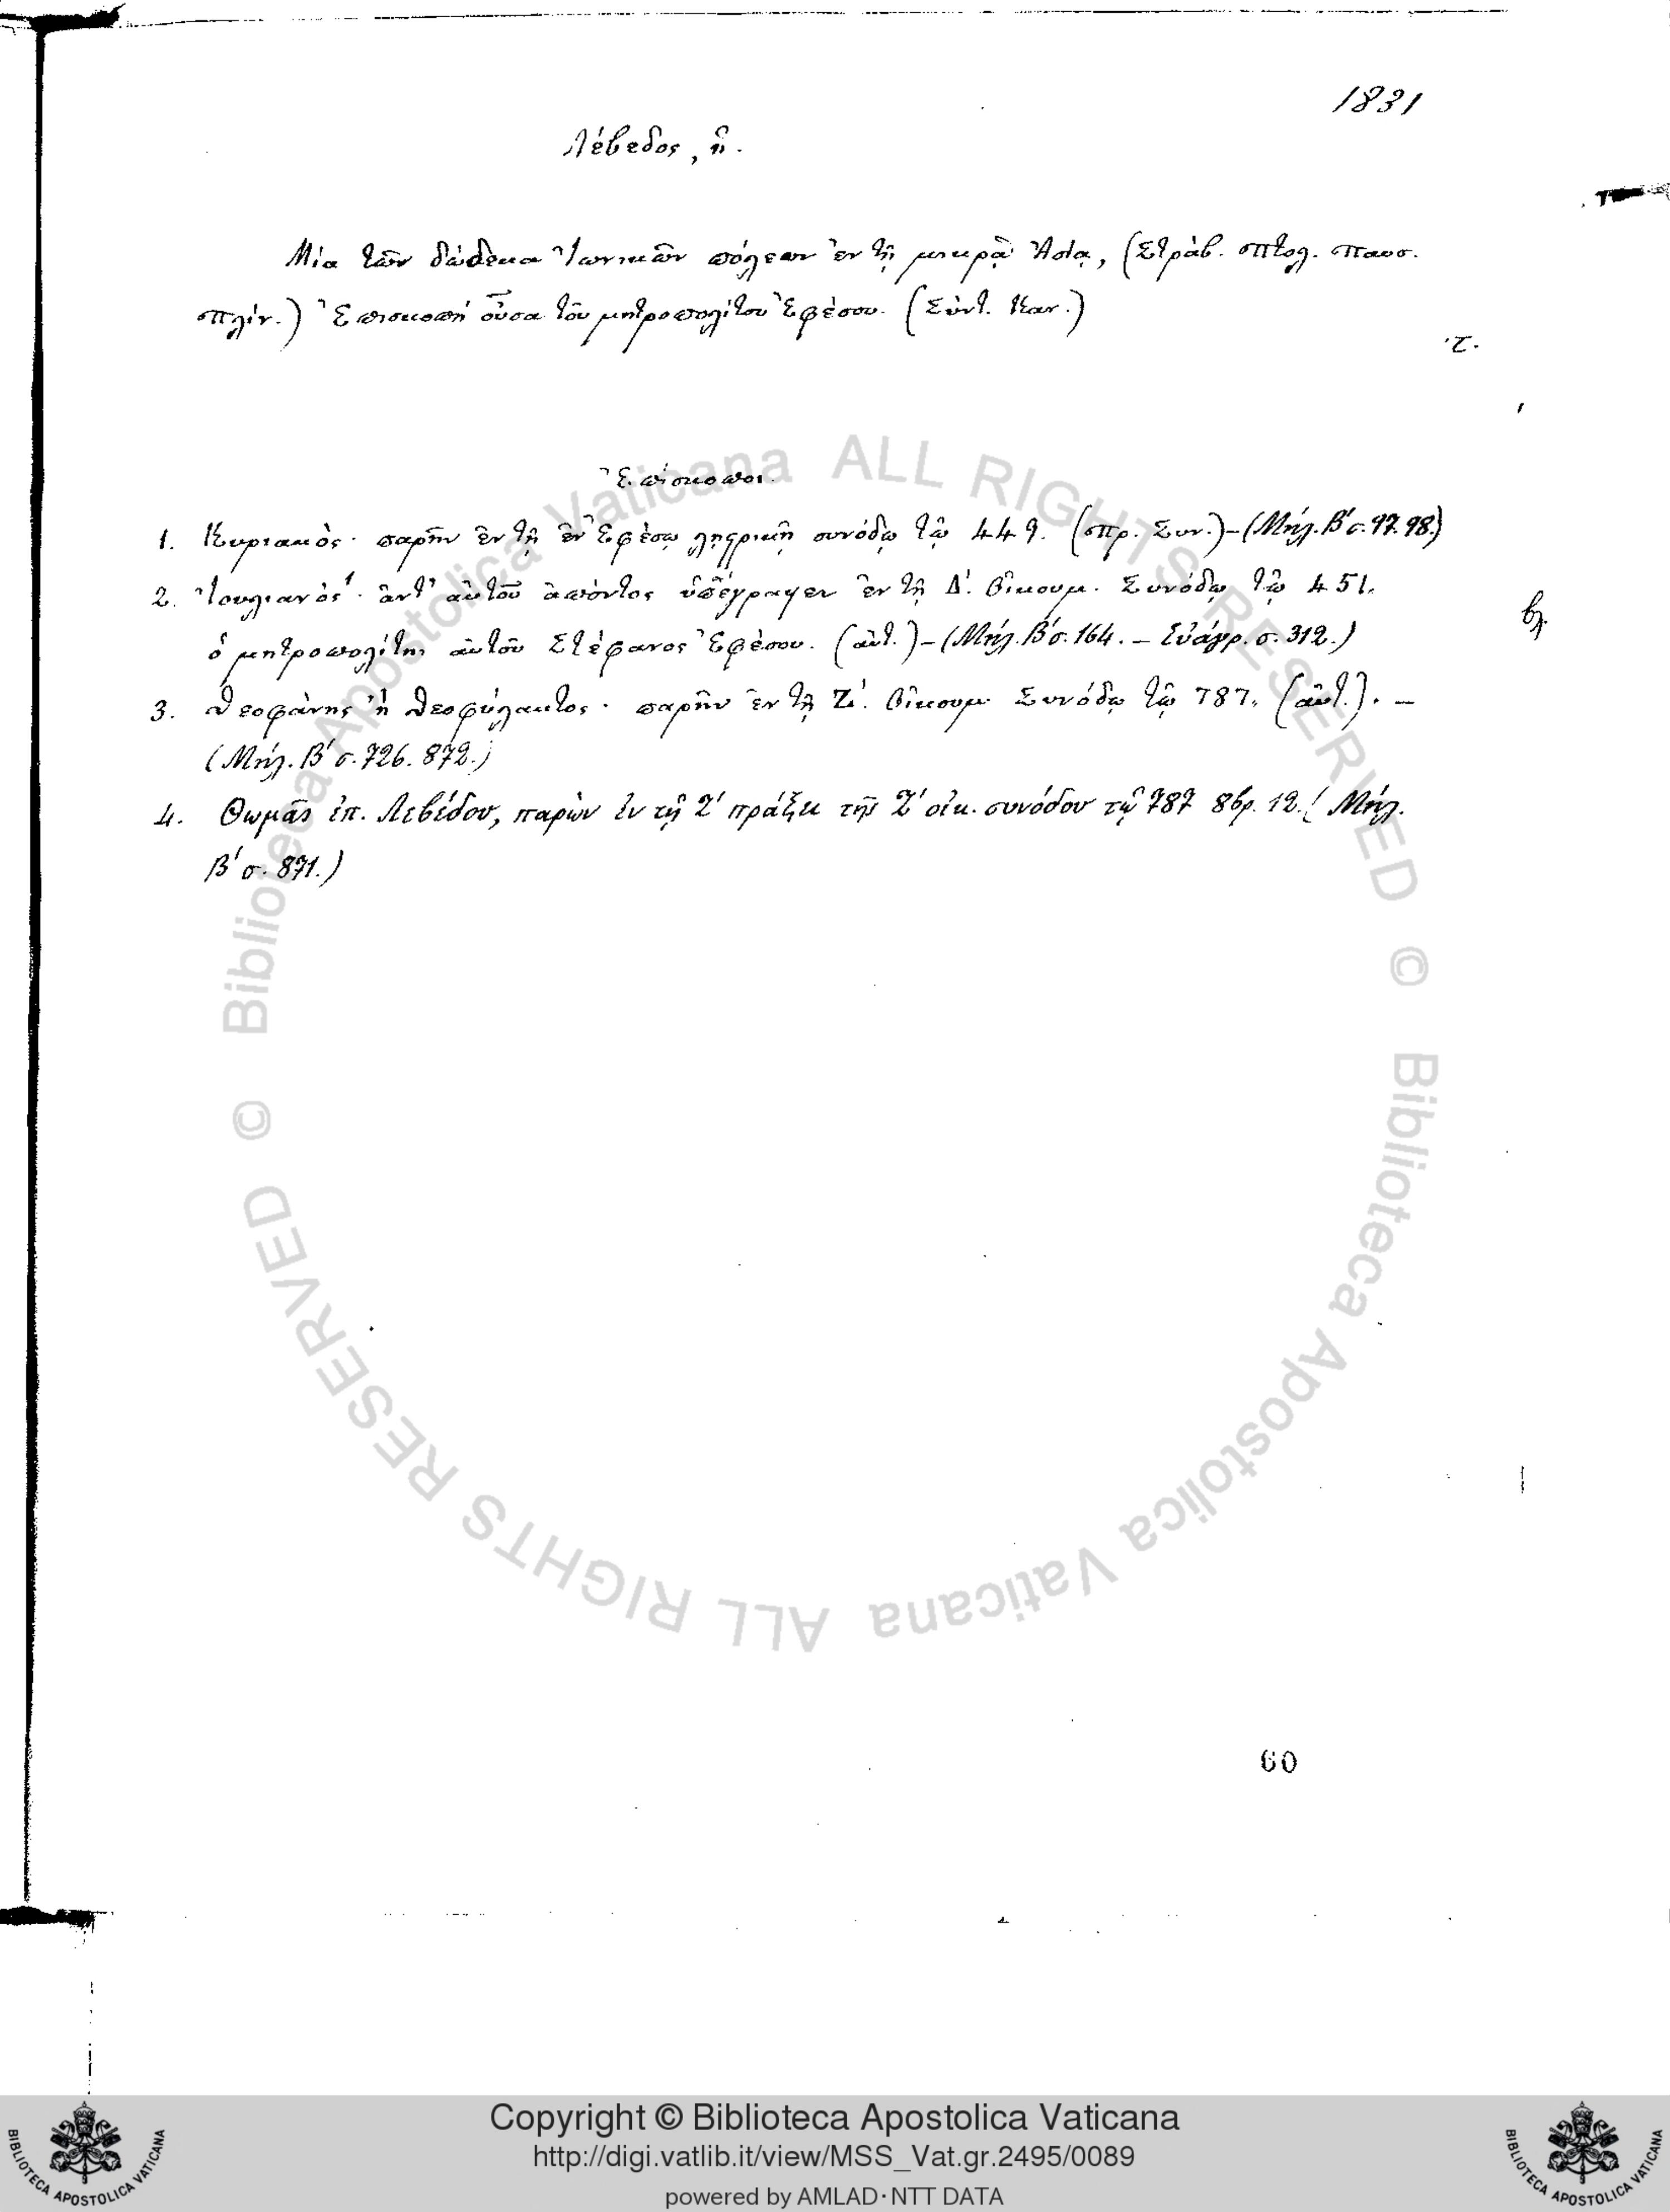 1831
Λέβεδος, ἡ.
Μία τῶν δώδεκα Ἰωνικῶν πόλεων ἐν τῇ μικρᾷ Ἀσίᾳ, (Στράβ. Πτολ. Παυσ.
Πλίν.) Ἐπισκοπὴ οὖσα τοῦ μητροπολίτου Ἐφέσου. (Σύντ. Καν.)
Ἐπίσκοποι.
1. Κυριακὸς· παρῆν ἐν τῇ ἐν Ἐφέσῳ λῃστρικῇ συνόδῳ τῷ 449. (Πρ. Συν.)-(Μήλ. Β΄ σ. 97. 98.)
2. Ἰουλιανὸς¹· ἀντ' αὐτοῦ ἀπόντος ὑπέγραψεν ἐν τῇ Δ΄. Οἰκουμ. Συνόδῳ τῷ 451.
ὁ μητροπολίτης αὐτοῦ Στέφανος Ἐφέσου. (αὐτ.)-(Μήλ. Β΄ σ. 164. - Εὐάγρ. σ. 312.)
3. Θεοφάνης ἢ Θεοφύλακτος· παρῆν ἐν τῇ Ζ΄. Οἰκουμ. Συνόδῳ τῷ 787. (αὐτ.). -
(Μήλ. Β΄ σ. 726. 872.)
4. Θωμᾶς ἐπ. Λεβέδου, παρὼν ἐν τῇ Ζ΄ πράξει τῆς Ζ΄ οἰκ. συνόδου τῷ 787 8βρ. 12. (Μήλ.
Β΄ σ. 871.)
60
© Biblioteca Apostolica Vaticana ALL RIGHTS RESERVED
© Biblioteca Apostolica Vaticana ALL RIGHTS RESERVED
Copyright © Biblioteca Apostolica Vaticana
http://digi.vatlib.it/view/MSS_Vat.gr.2495/0089
powered by AMLAD·NTT DATA
BIBLIOTECA APOSTOLICA VATICANA
BIBLIOTECA APOSTOLICA VATICANA